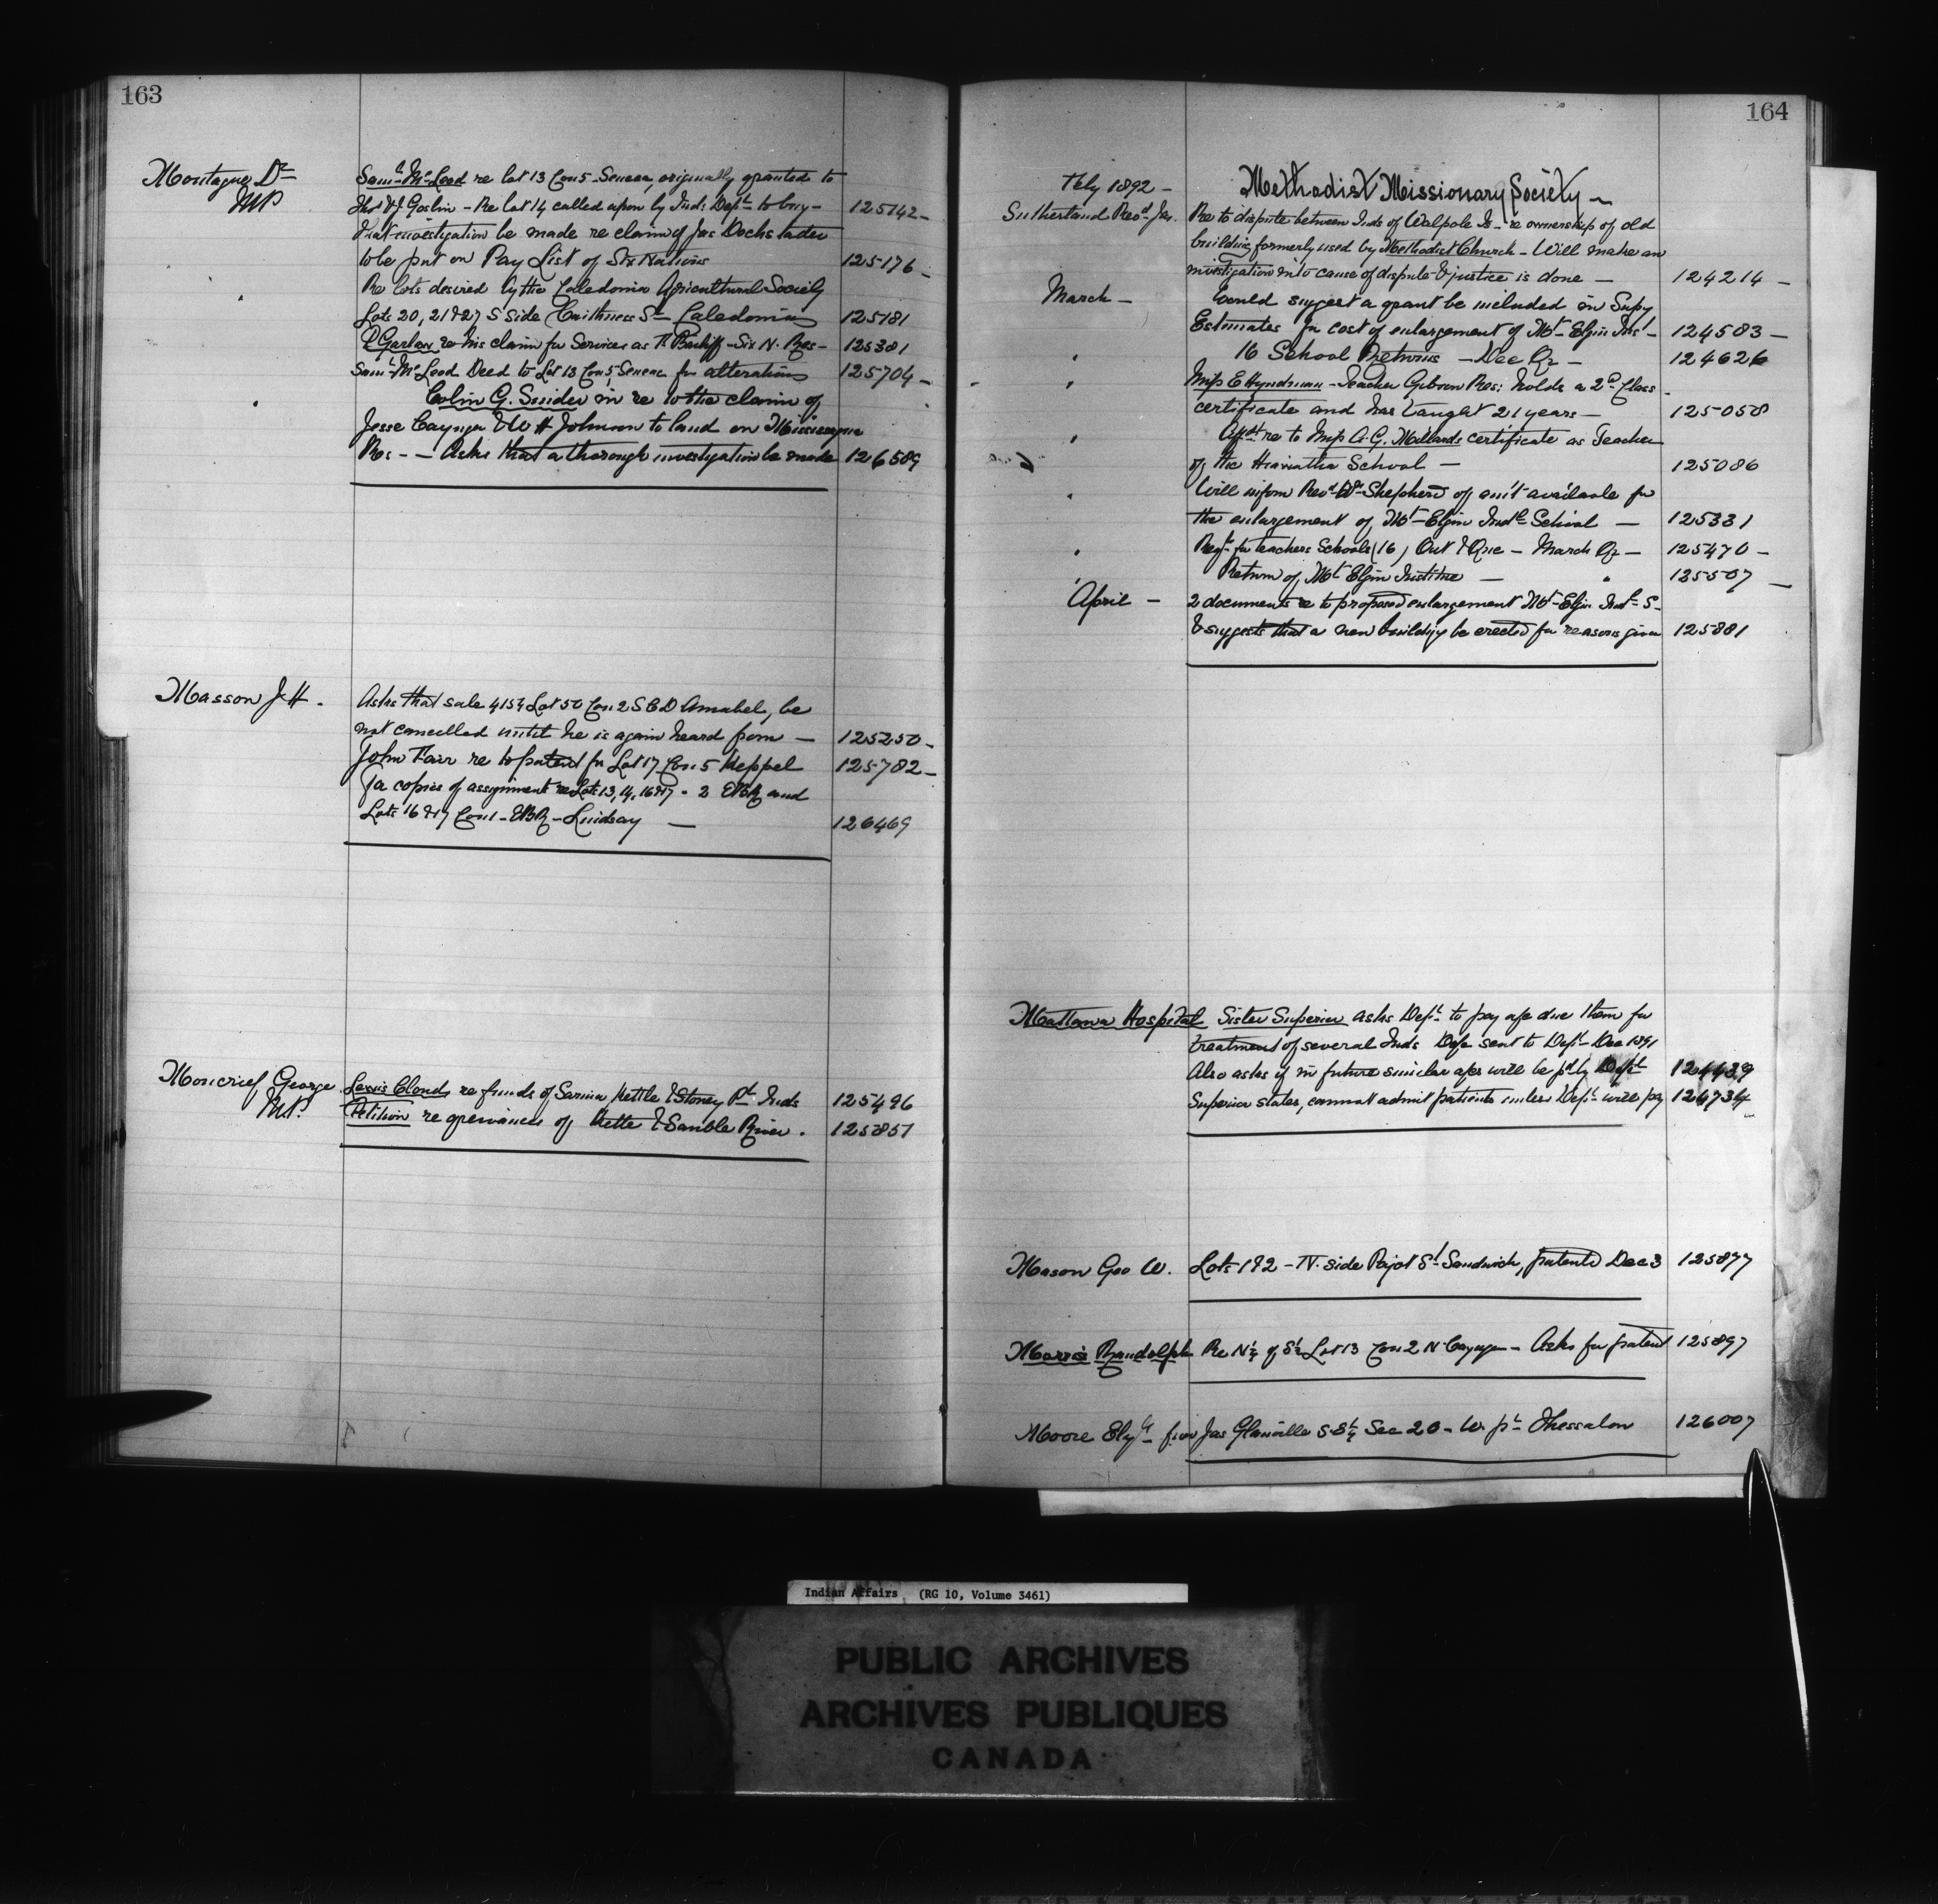 163
Montague Dr
MP
Saml McLeod re lot 13 Con 5 Seneca, originally granted to
Thos & J Goslin - Re lot 14 called upon by Inds Dept to buy - 125142 -
That investigation be made re claim of Jas Dochstader
to be put on Pay List of Six Nations 125176 -
Re lots desired by the Caledonia Agricultural Society
Lots 20, 21 & 27 S Side Caithness St Caledonia 125181
Garlow re his claim for Services as Bailiff - Six N. Res - 125381
Saml McLeod Deed to Lot 13 Con 5, Seneca for alterations 125704 -
Colin G. Snider in re to the claim of
Jesse Cayuga & W H Johnson to land on Mississagua
Res - - Asks that a thorough investigation be made 126589
Masson J H.
Asks that sale 4154 Lot 50 Con 2 S C D Amabel, be
not cancelled until he is again heard from - 125250 -
John Fair re to patent for Lot 17 Con 5 Keppel 125782 -
For copies of assignment re Lots 13, 14, 16 & 17 - 2 EBR and
Lots 16 & 17 Con 1 - EBR - Lindsay - 126469
Moncrief, George
MP.
Lewis Cloud re funds of Sarnia Kettle & Stoney Pt Inds 125496
Petition re grievances of Kettle & Sauble River. 125851
164
Feby 1892 - Methodist Missionary Society -
Sutherland Revd Jas. Re to dispute between Inds of Walpole Is - re ownership of old
building formerly used by Methodist Church - Will make an
investigation into cause of dispute & justice is done - 124214 -
March - Would suggest a grant be included in Supy
Estimates for cost of enlargement of Mt Elgin Inst - 124583 -
" 16 School Returns - Dec Qr - 124626
" Miss E Hyndman - Teacher Gibson Res: holds a 2d Class
certificate and has taught 21 years - 125058
" re to Miss A. G. Millards certificate as Teacher
of the Hiawatha School - 125086
" Will inform Revd W Shepherd of amt available for
the enlargement of Mt Elgin Indl School - 125331
" for teachers Schools (16) Ont & Que - March Qr - 125470 -
Return of Mt Elgin Institue - " 125507 -
April - 2 documents re to proposed enlargement Mt Elgin Indl S -
& suggests that a new building be erected for reasons given 125881
Mattawa Hospital Sister Superior asks Dept to pay a/c due them for
treatment of several Inds sent to Dept Dec 1891
Also asks if in future similar a/cs will be pd by Dept 124439
Superior states, cannot admit patients unless Dept will pay 124734
Mason Geo W. Lots 1 & 2 - N. side St Sandwich, patented Dec 3 125877
Morris Randolph Re N½ of S½ Lot 13 Con 2 N Cayuga - Asks for patent 125897
Moore Elyh from Jas Glanville S.E¼ Sec 20 - W. pt Thessalon 126007
Indian Affairs (RG 10, Volume 3461)
PUBLIC ARCHIVES
ARCHIVES PUBLIQUES
CANADA